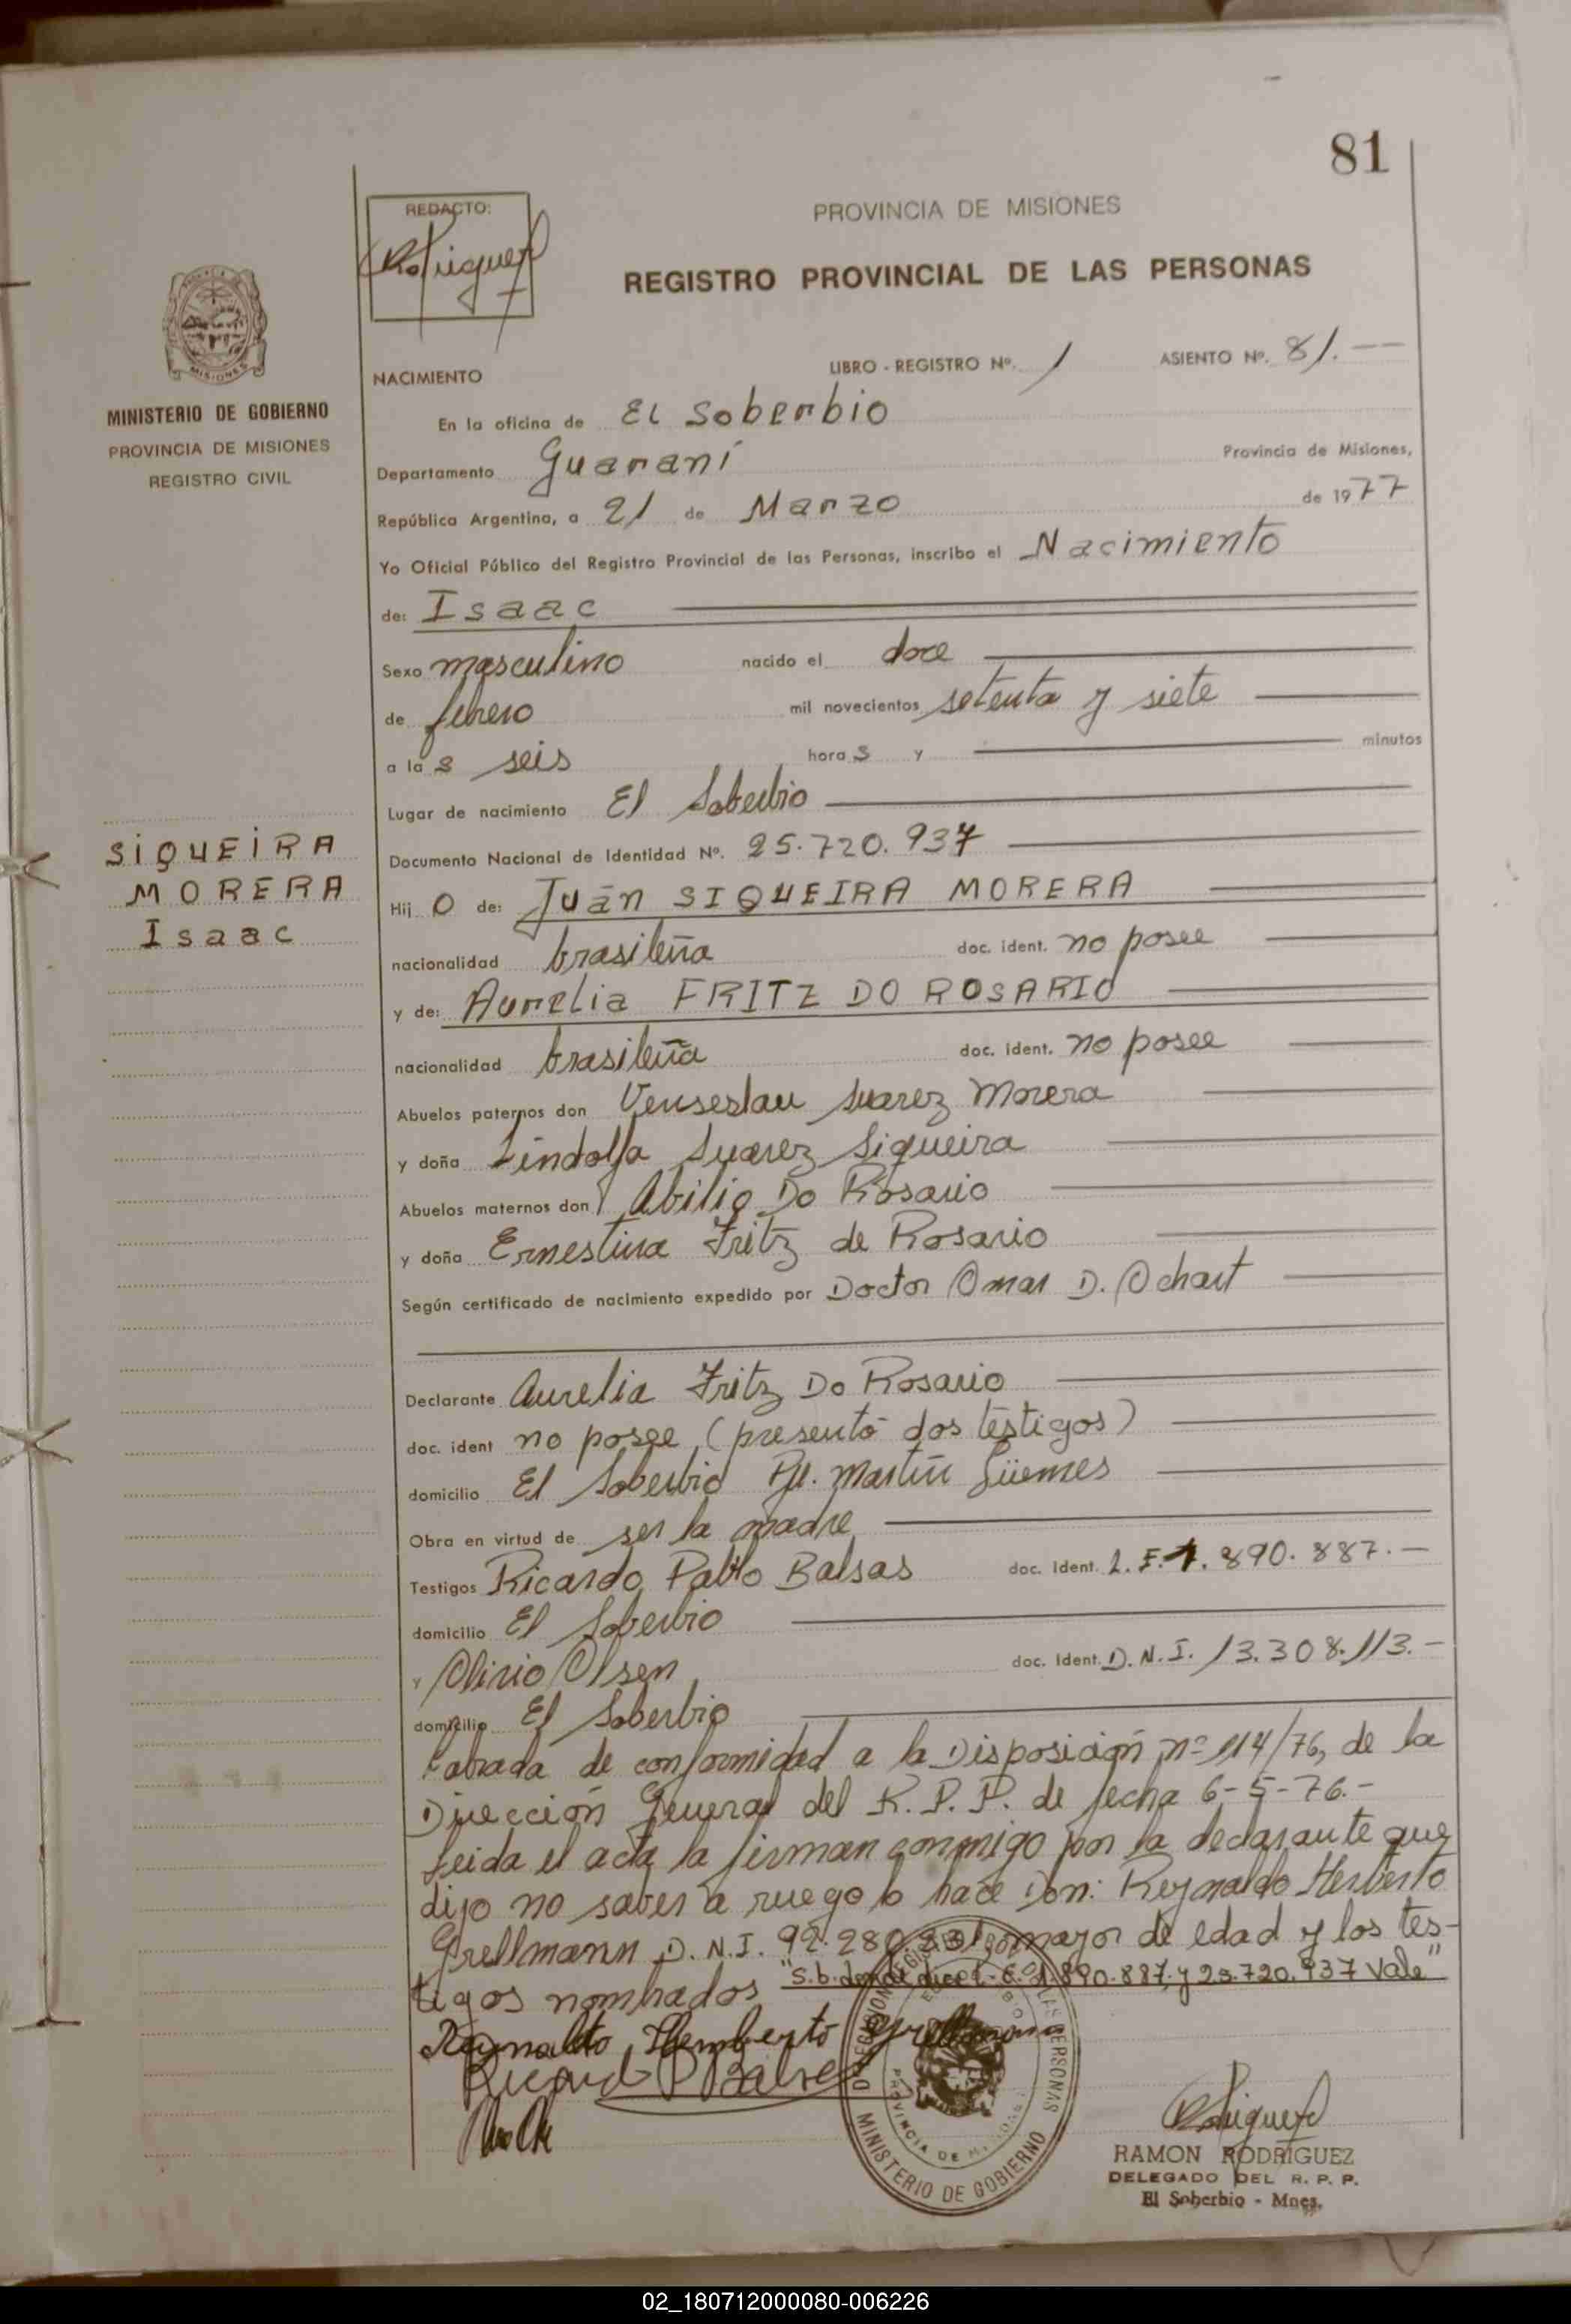 81
REDACTO:
Rodriguez
PROVINCIA DE MISIONES
REGISTRO PROVINCIAL DE LAS PERSONAS
MISIONES
MINISTERIO DE GOBIERNO
PROVINCIA DE MISIONES
REGISTRO CIVIL
NACIMIENTO LIBRO - REGISTRO Nº. 1 ASIENTO Nº. 81.--
En la oficina de El Soberbio
Departamento Guaraní Provincia de Misiones,
República Argentina, a 21 de Marzo de 1977
Yo Oficial Público del Registro Provincial de las Personas, inscribo el Nacimiento
de: Isaac
Sexo masculino nacido el doce
de febrero mil novecientos setenta y siete
a las seis horas y minutos
Lugar de nacimiento El Soberbio
SIQUEIRA
MORERA
Isaac
Documento Nacional de Identidad Nº. 25.720.937
Hijo de: Juán SIQUEIRA MORERA
nacionalidad brasileña doc. ident. no posee
y de: Aurelia FRITZ DO ROSARIO
nacionalidad brasileña doc. ident. no posee
Abuelos paternos don Venseslau Suarez Morera
y doña Lindolfa Suarez Siqueira
Abuelos maternos don Abilio Do Rosario
y doña Ernestina Fritz de Rosario
Según certificado de nacimiento expedido por Doctor Omar D. Ochart
Declarante Aurelia Fritz Do Rosario
doc. ident no posee (presentó dos testigos)
domicilio El Soberbio Pje. Martín Güemes
Obra en virtud de ser la madre
Testigos Ricardo Pablo Balsas doc. ident. L.E. 1.890.887.-
domicilio El Soberbio
y Olirio Olsen doc. ident. D.N.I. 13.308.113.-
domicilio El Soberbio
Labrada de conformidad a la Disposición nº 114/76, de la
Dirección General del R.P.P. de fecha 6-5-76.-
Leida el acta la firman conmigo por la declarante que
dijo no saber a ruego lo hace Don: Reynaldo Herberto
Grellmann D.N.I. 92.280.231 mayor de edad y los tes-
tigos nombrados "S.b. donde dice L.E. 1.890.887. y 25.720.937 Vale"
Reynaldo Hemberto Grellmann
Ricardo P Balsas
DELEGACION REGISTRO PROV. DE LAS PERSONAS
PROVINCIA DE MISIONES
MINISTERIO DE GOBIERNO
Rodriguez
RAMON RODRIGUEZ
DELEGADO DEL R. P. P.
El Soberbio - Mnes.
02_180712000080-006226